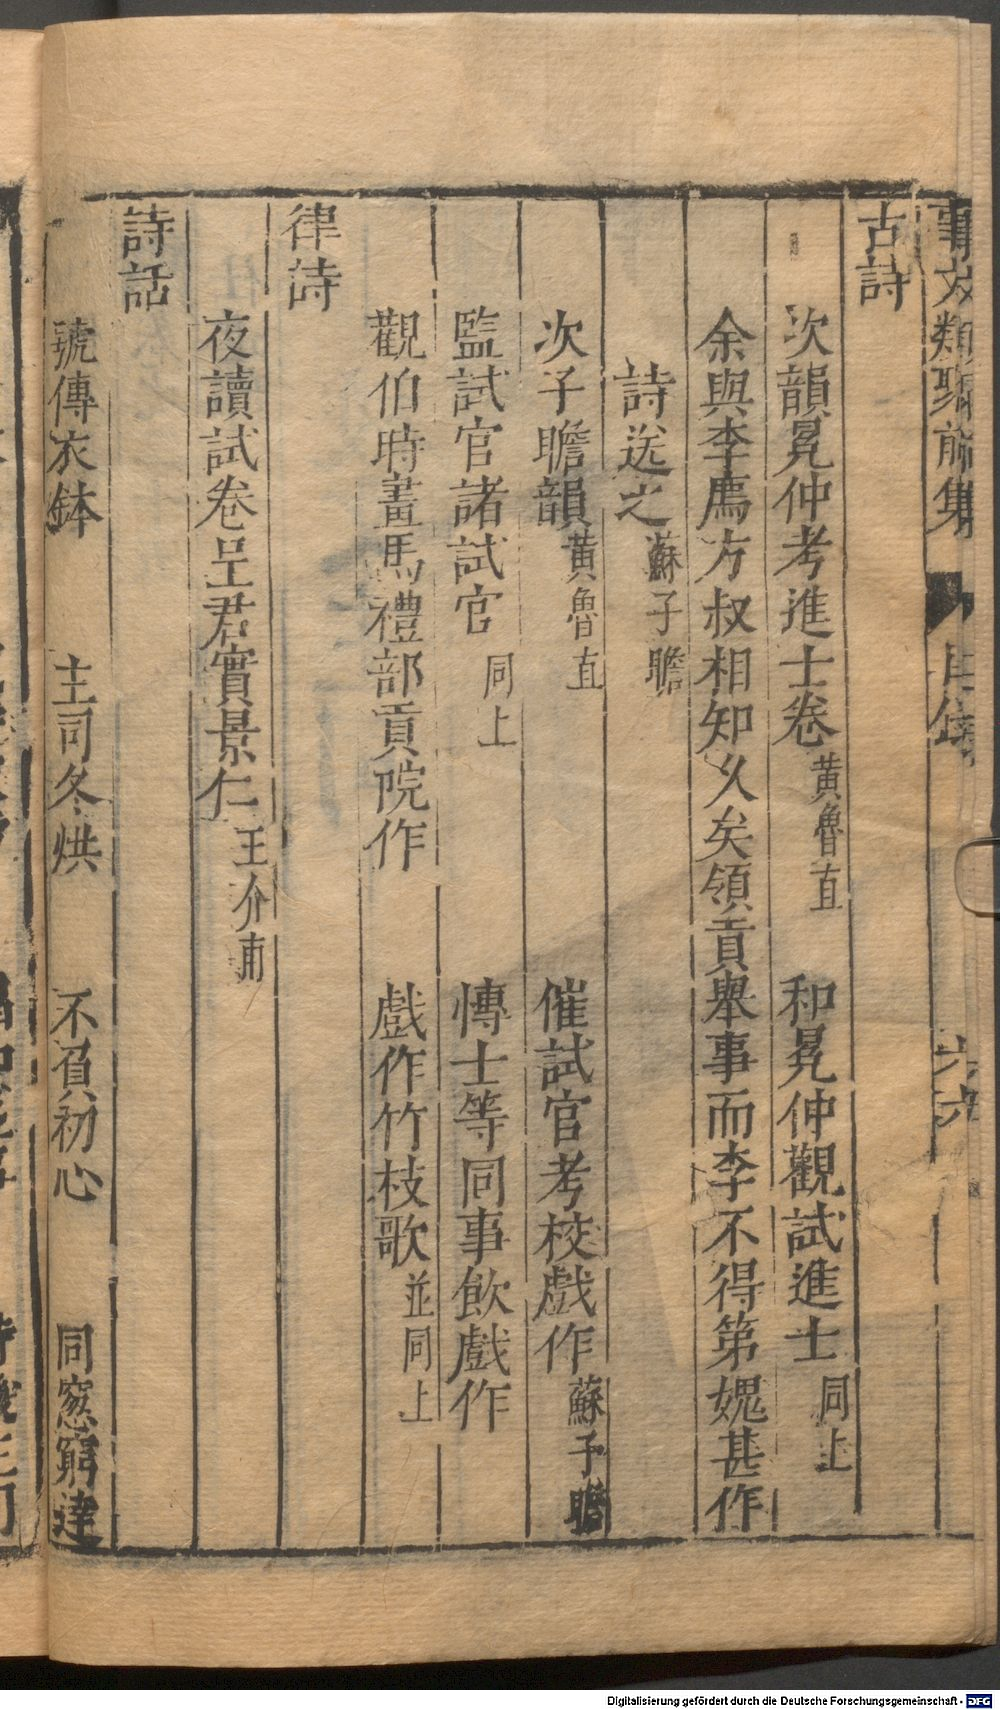 事文類聚前集 目録 六六
古詩
次韻晁仲考進士卷 黃魯直 和晁仲觀試進士 同上
余與李廌方叔相知久矣領貢舉事而李不得第媿甚作
詩送之 蘇子瞻
次子瞻韻 黃魯直 催試官考校戲作 蘇子瞻
監試官諸試官 同上 博士等同事飲戲作
觀伯時畫馬禮部貢院作 戲作竹枝歌 並同上
律詩
夜讀試卷呈君實景仁 王介甫
詩話
號傳衣鉢 主司冬烘 不負初心 同窓窮達
Digitalisierung gefördert durch die Deutsche Forschungsgemeinschaft - DFG